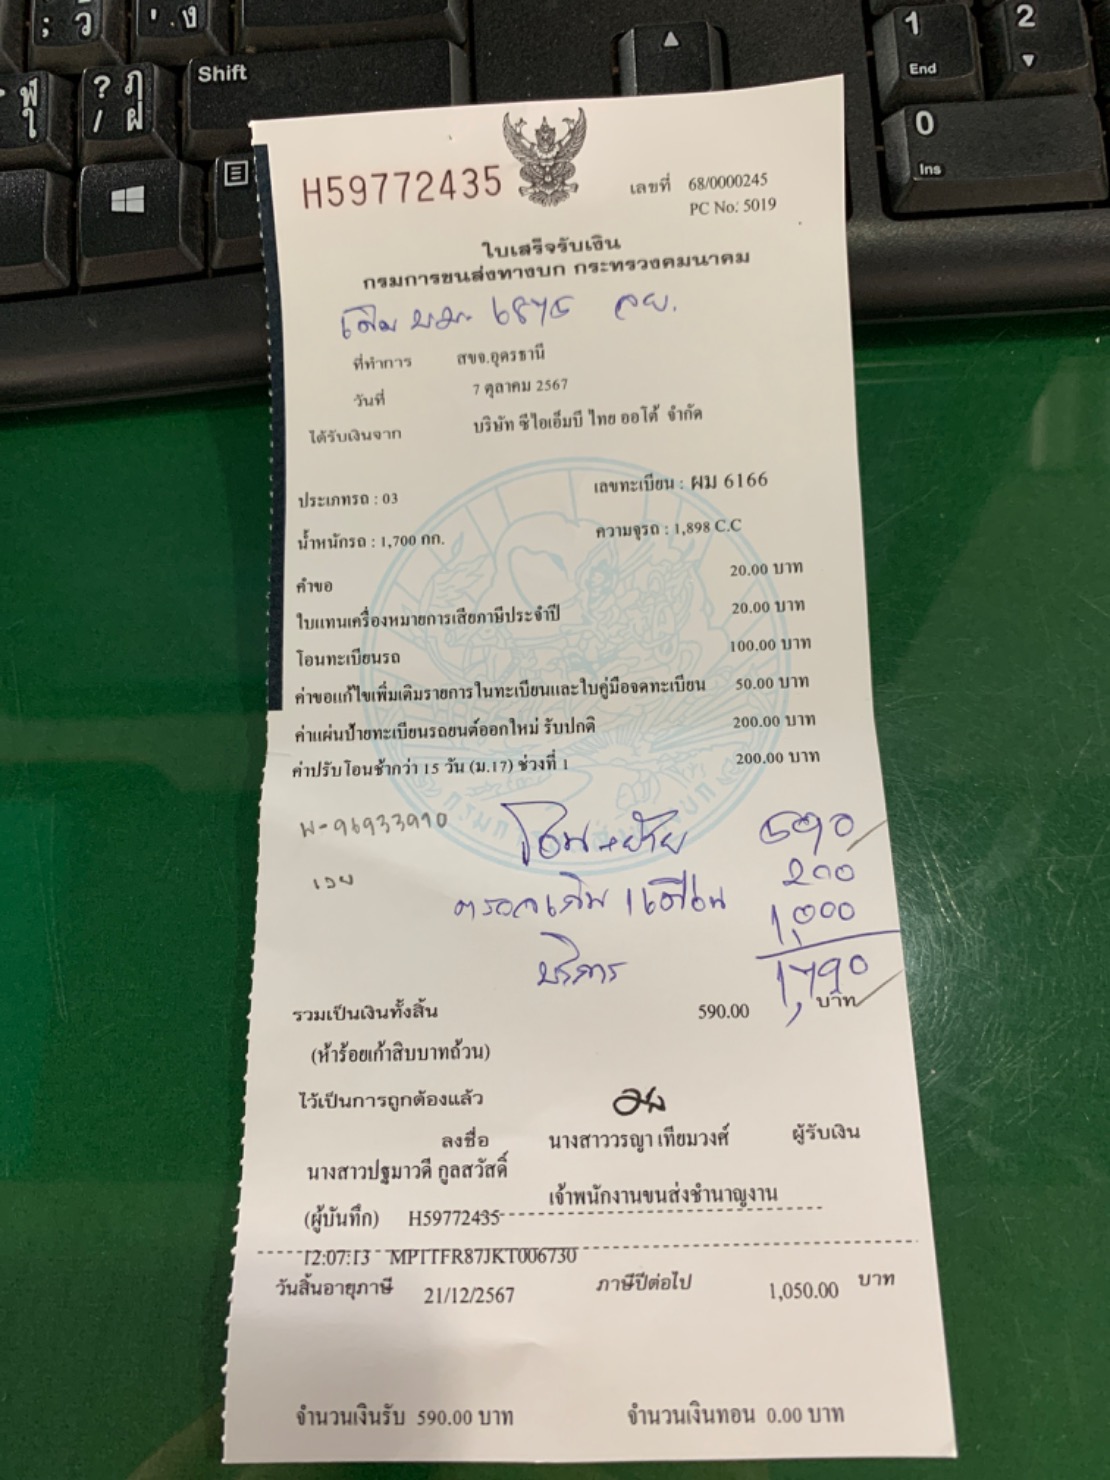 ; ว
' . ง
Shift
ฟ ใ
? ฦ / ฝ
1 End
2
0 Ins
H59772435
เลขที่ 68/0000245
PC No: 5019
ใบเสร็จรับเงิน
กรมการขนส่งทางบก กระทรวงคมนาคม
เดิม
ที่ทำการ สขจ.อุดรธานี
วันที่ 7 ตุลาคม 2567
ได้รับเงินจาก บริษัท ซีไอเอ็มบี ไทย ออโต้ จำกัด
ประเภทรถ : 03 เลขทะเบียน : ผม 6166
น้ำหนักรถ : 1,700 กก. ความจุรถ : 1,898 C.C
คำขอ 20.00 บาท
ใบแทนเครื่องหมายการเสียภาษีประจำปี 20.00 บาท
โอนทะเบียนรถ 100.00 บาท
ค่าขอแก้ไขเพิ่มเติมรายการในทะเบียนและใบคู่มือจดทะเบียน 50.00 บาท
ค่าแผ่นป้ายทะเบียนรถยนต์ออกใหม่ รับปกติ 200.00 บาท
ค่าปรับโอนช้ากว่า 15 วัน (ม.17) ช่วงที่ 1 200.00 บาท
พ-96933910
โอน+ย้าย 590
เวย
200
1,000
บริการ
1,790
รวมเป็นเงินทั้งสิ้น 590.00 บาท
(ห้าร้อยเก้าสิบบาทถ้วน)
ไว้เป็นการถูกต้องแล้ว
ลงชื่อ นางสาววรญา เทียมวงศ์ ผู้รับเงิน
นางสาวปฐมาวดี กูลสวัสดิ์
เจ้าพนักงานขนส่งชำนาญงาน
(ผู้บันทึก) H59772435
12:07:13 MP1TFR87JKT006730
วันสิ้นอายุภาษี 21/12/2567 ภาษีปีต่อไป 1,050.00 บาท
จำนวนเงินรับ 590.00 บาท จำนวนเงินทอน 0.00 บาท